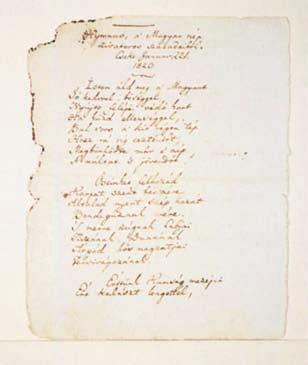 Hymnus, a' Magyar nép
zivataros századaiból.
Cseke Januar. 22d.
1823
Isten áldd meg a' Magyart
Jó kedvvel, bőséggel,
Nyújts feléje védő kart
Ha küzd ellenséggel;
Bal sors a' kit régen tép
Hozz rá víg esztendőt,
Megbünhödte már e' nép
A' multat 's jövendőt.
Őseinket felhozád
Kárpát szent bérczére
Általad nyert szép hazát
Bendegúznak vére.
'S merre zúgnak habjai
Tiszának Dunának
Árpád hős magzatjai
Felvirágozának.
Értünk Kunság mezején
Ért kalászt lengettél,